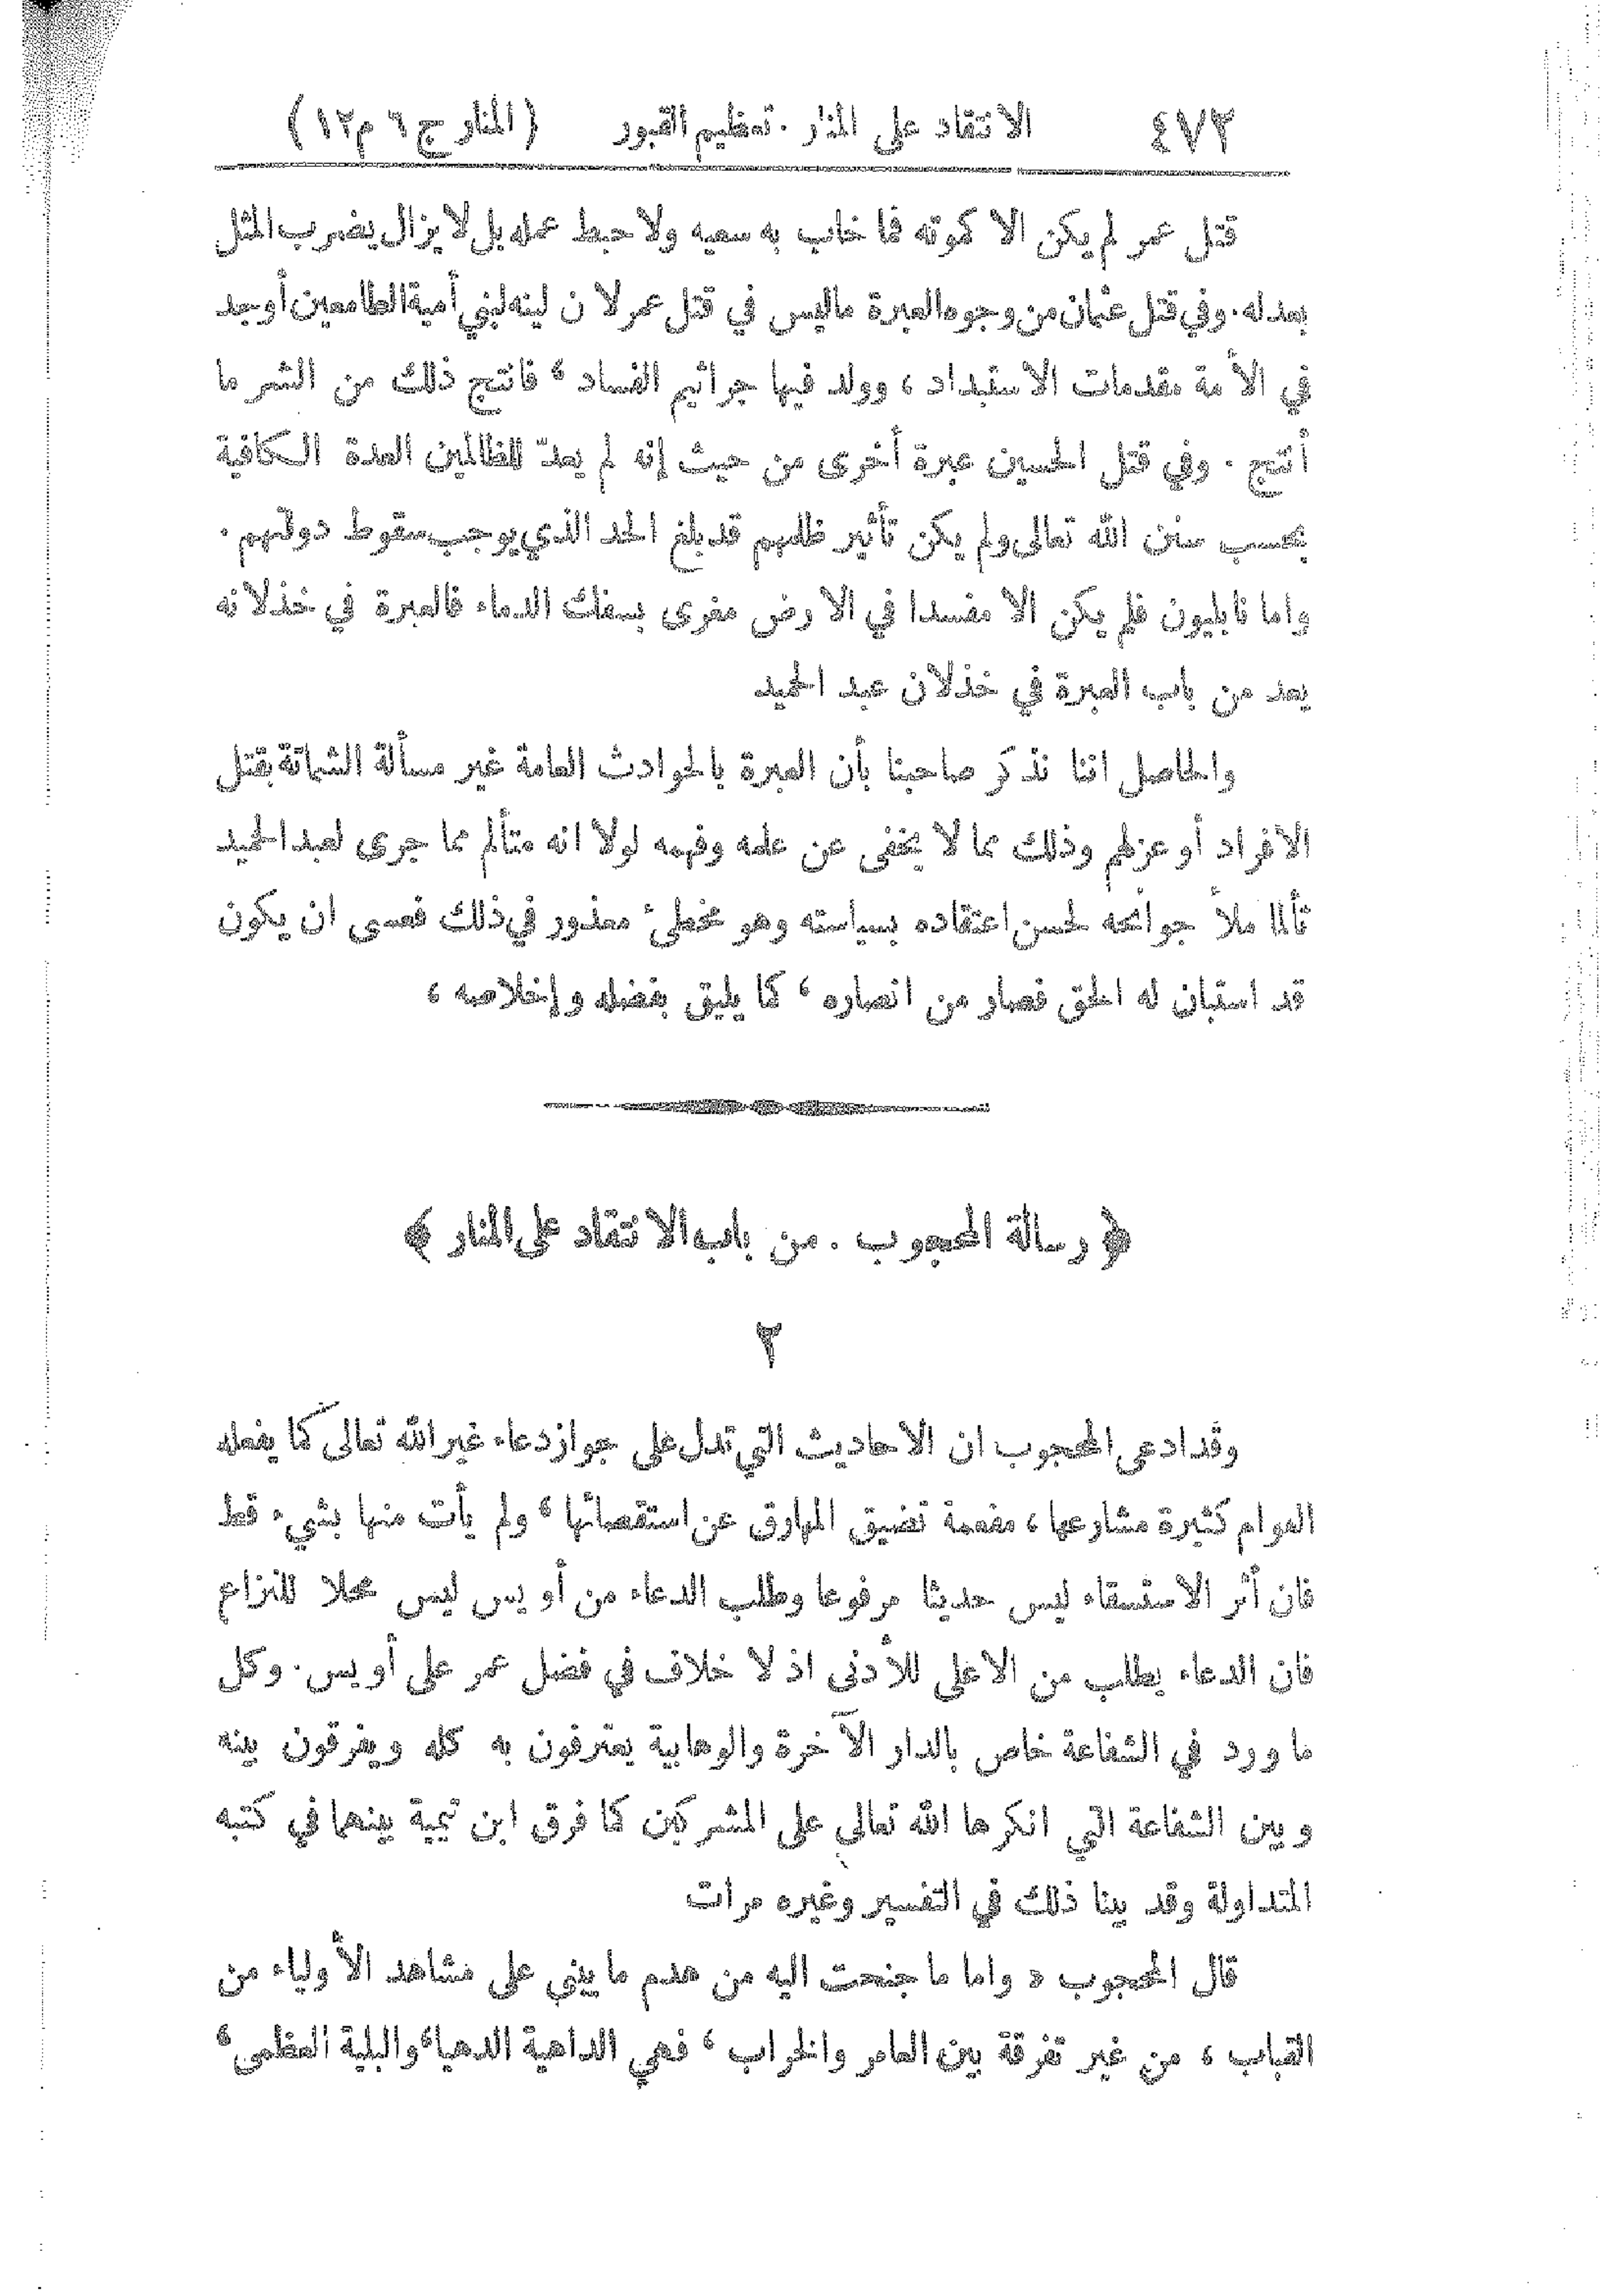 ٤٧٢ الانتقاد على المنار . تعظيم القبور (المنار ج ٦ م ١٢)
قتل عمر لم يكن الا كموته فما خاب به سعيه ولا حبط عمله بل لا يزال يضرب المثل
بعدله . وفي قتل عثمان من وجوه العبرة ما ليس في قتل عمر لان لينه لبني أمية الطامعين أوجد
في الأمة مقدمات الاستبداد ، وولد فيها جراثيم الفساد ، فانتج ذلك من الشر ما
أنتج . وفي قتل الحسين عبرة أخرى من حيث إنه لم يعدّ للظالمين العدة الكافية
بحسب سنن الله تعالى ولم يكن تأثير ظلمهم قد بلغ الحد الذي يوجب سقوط دولتهم .
واما نابليون فلم يكن الا مفسدا في الارض مغرى بسفك الدماء فالعبرة في خذلانه
يعد من باب العبرة في خذلان عبد الحميد
والحاصل اننا نذكر صاحبنا بأن العبرة بالحوادث العامة غير مسألة الشماتة بقتل
الافراد أو عزلهم وذلك مما لا يخفى عن علمه وفهمه لولا انه متألم مما جرى لعبد الحميد
تألما ملأ جوانحه لحسن اعتقاده بسياسته وهو مخطئ معذور في ذلك فعسى ان يكون
قد استبان له الحق فصار من انصاره ، كما يليق بفضله وإخلاصه ،
﴿ رسالة المحجوب . من باب الانتقاد على المنار ﴾
٢
وقد ادعى المحجوب ان الاحاديث التي تدل على جواز دعاء غير الله تعالى كما يفعله
العوام كثيرة مشارعها ، مفعمة تضيق المهارق عن استقصائها ، ولم يأت منها بشيء قط
فان أثر الاستسقاء ليس حديثا مرفوعا وطلب الدعاء من أويس ليس محلا للنزاع
فان الدعاء يطلب من الاعلى للأدنى اذ لا خلاف في فضل عمر على أويس . وكل
ما ورد في الشفاعة خاص بالدار الآخرة والوهابية يعترفون به كله ويفرقون بينه
وبين الشفاعة التي انكرها الله تعالى على المشركين كما فرق ابن تيمية بينهما في كتبه
المتداولة وقد بينا ذلك في التفسير وغيره مرات
قال المحجوب « واما ما جنحت اليه من هدم ما يبنى على مشاهد الأولياء من
القباب ، من غير تفرقة بين العامر والخراب ، فهي الداهية الدهيا ، والبلية العظمى ،